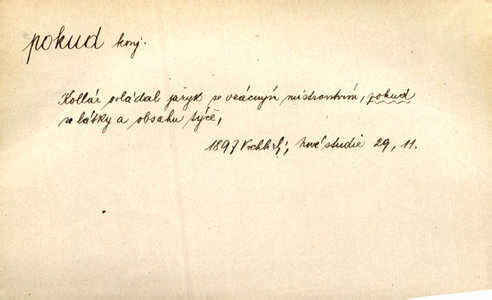 pokud konj.
Kollár ovládal jazyk se vzácným mistrovstvím, pokud
se látky a obsahu týče,
1897 Vrchlický, Nové studie 29, 11.